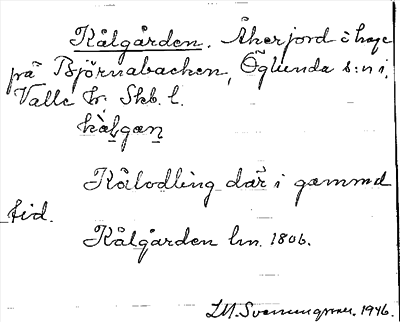 Kålgården. Åkerjord o hage
på Björnabacken, Öglunda s:n i
Valle hr. Skb. l.
kålgan
Kålodling där i gammal
tid.
Kålgården lm. 1806.
1946.